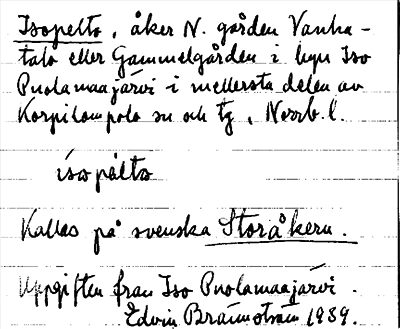 Isopelto, åker N. gården Vanha-
talo eller Gammelgården i byn Iso
Puolamaajärvi i mellersta delen av
Korpilompolo sn och tg, Norrb. l.
isopålto
Kallas på svenska Storåkern.
Uppgiften från Iso Puolamaajärvi.
Edvin Brännström 1939.